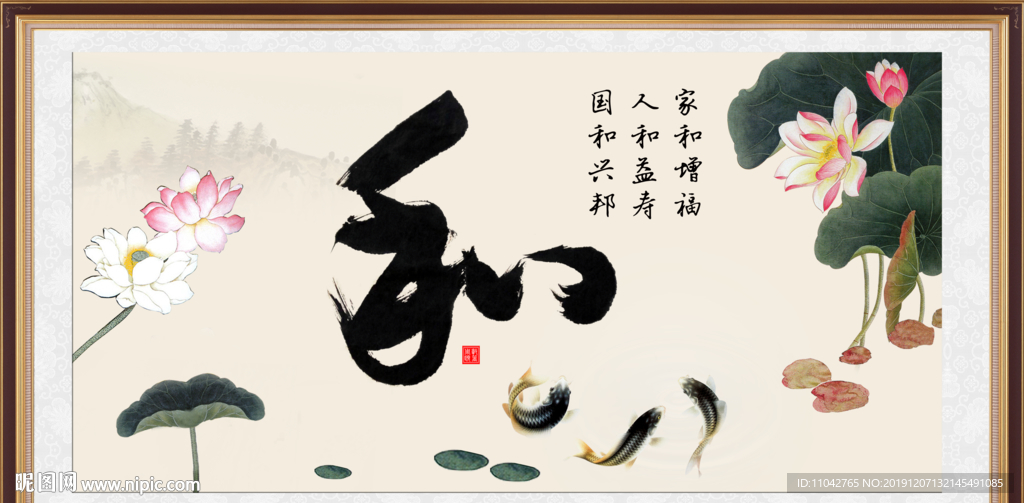 和
家和增福
人和益寿
国和兴邦
昵图网 www.nipic.com
ID:11042765 NO:20191207132145491085